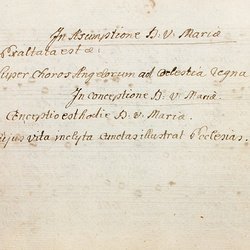 In Assumptione B. V. Mariæ
Exaltata est &c:
super Choros Angelorum ad Cœlestia regna
In Conceptione B. V. Mariæ.
Conceptio est hodie B. V. Mariæ.
cujus vita inclyta Cunctas illustrat Ecclesias.